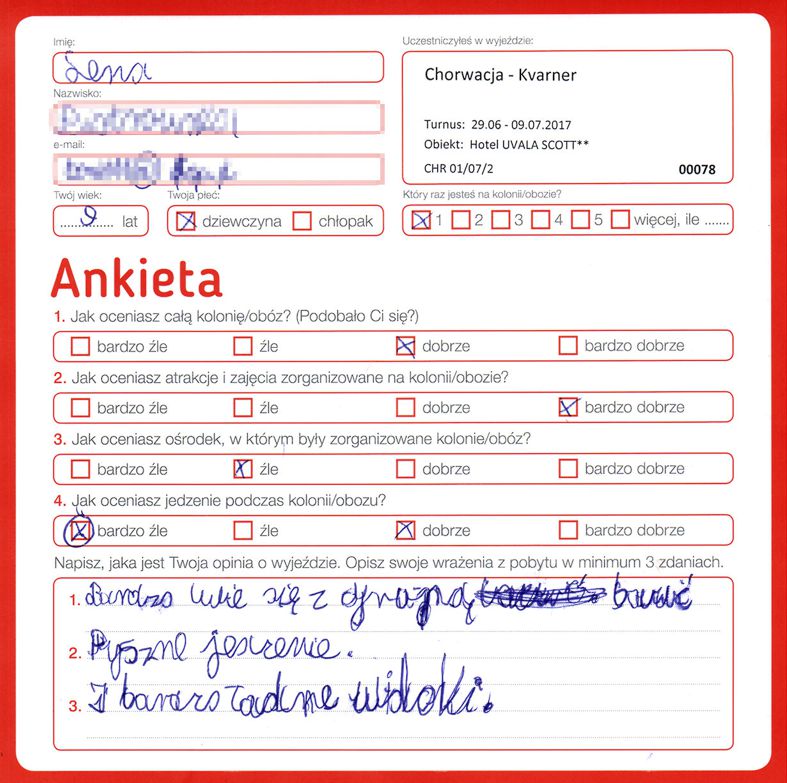 Imię:
Lena
Uczestniczyłeś w wyjeździe:
Chorwacja - Kvarner
Turnus: 29.06 - 09.07.2017
Obiekt: Hotel UVALA SCOTT**
CHR 01/07/2
00078
Nazwisko:
e-mail:
Twój wiek:
9 lat
Twoja płeć:
dziewczyna chłopak
Który raz jesteś na kolonii/obozie?
1 2 3 4 5 więcej, ile .......
Ankieta
1. Jak oceniasz całą kolonię/obóz? (Podobało Ci się?)
bardzo źle źle dobrze bardzo dobrze
2. Jak oceniasz atrakcje i zajęcia zorganizowane na kolonii/obozie?
bardzo źle źle dobrze bardzo dobrze
3. Jak oceniasz ośrodek, w którym były zorganizowane kolonie/obóz?
bardzo źle źle dobrze bardzo dobrze
4. Jak oceniasz jedzenie podczas kolonii/obozu?
bardzo źle źle dobrze bardzo dobrze
Napisz, jaka jest Twoja opinia o wyjeździe. Opisz swoje wrażenia z pobytu w minimum 3 zdaniach.
1. Bardzo lubie się z bawić
2. Pyszne jeszenie.
3. I barzo ładne widoki.